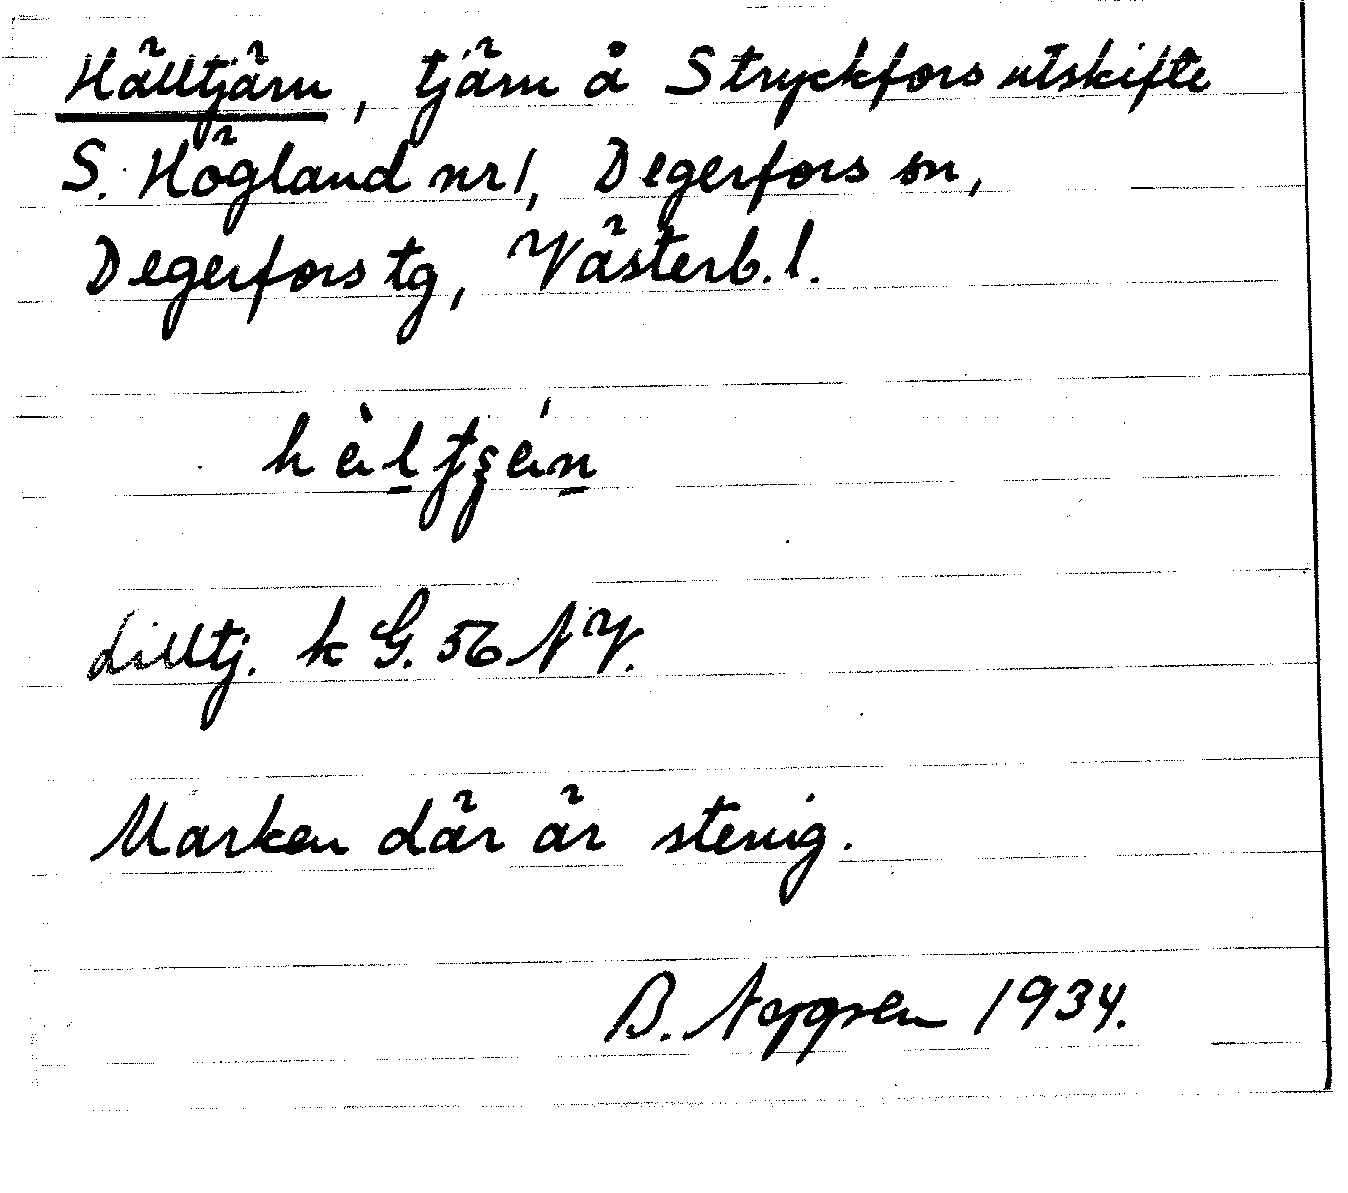 Hälltjärn, tjärn å Stryckfors utskifte
S. Högland nr 1, Degerfors sn,
Degerfors tg, Västerb. l.
Lilltj. k G. 56 NV.
Marken där är stenig.
B. 1934.